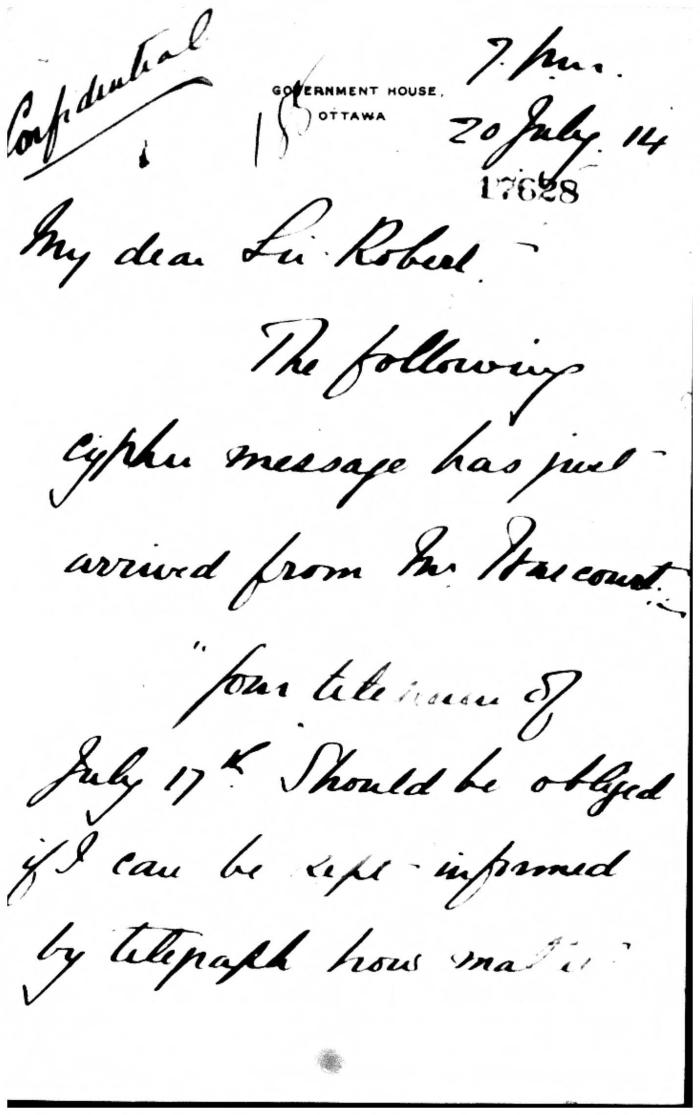 Confidential
7. p.m.
GOVERNMENT HOUSE,
OTTAWA
20 July. 14
17628
My dear Sir Robert.
The following
cypher message has just
arrived from Mr Harcourt.
"Your telegram of
July 17th. Should be obliged
if I can be kept informed
by telegraph how